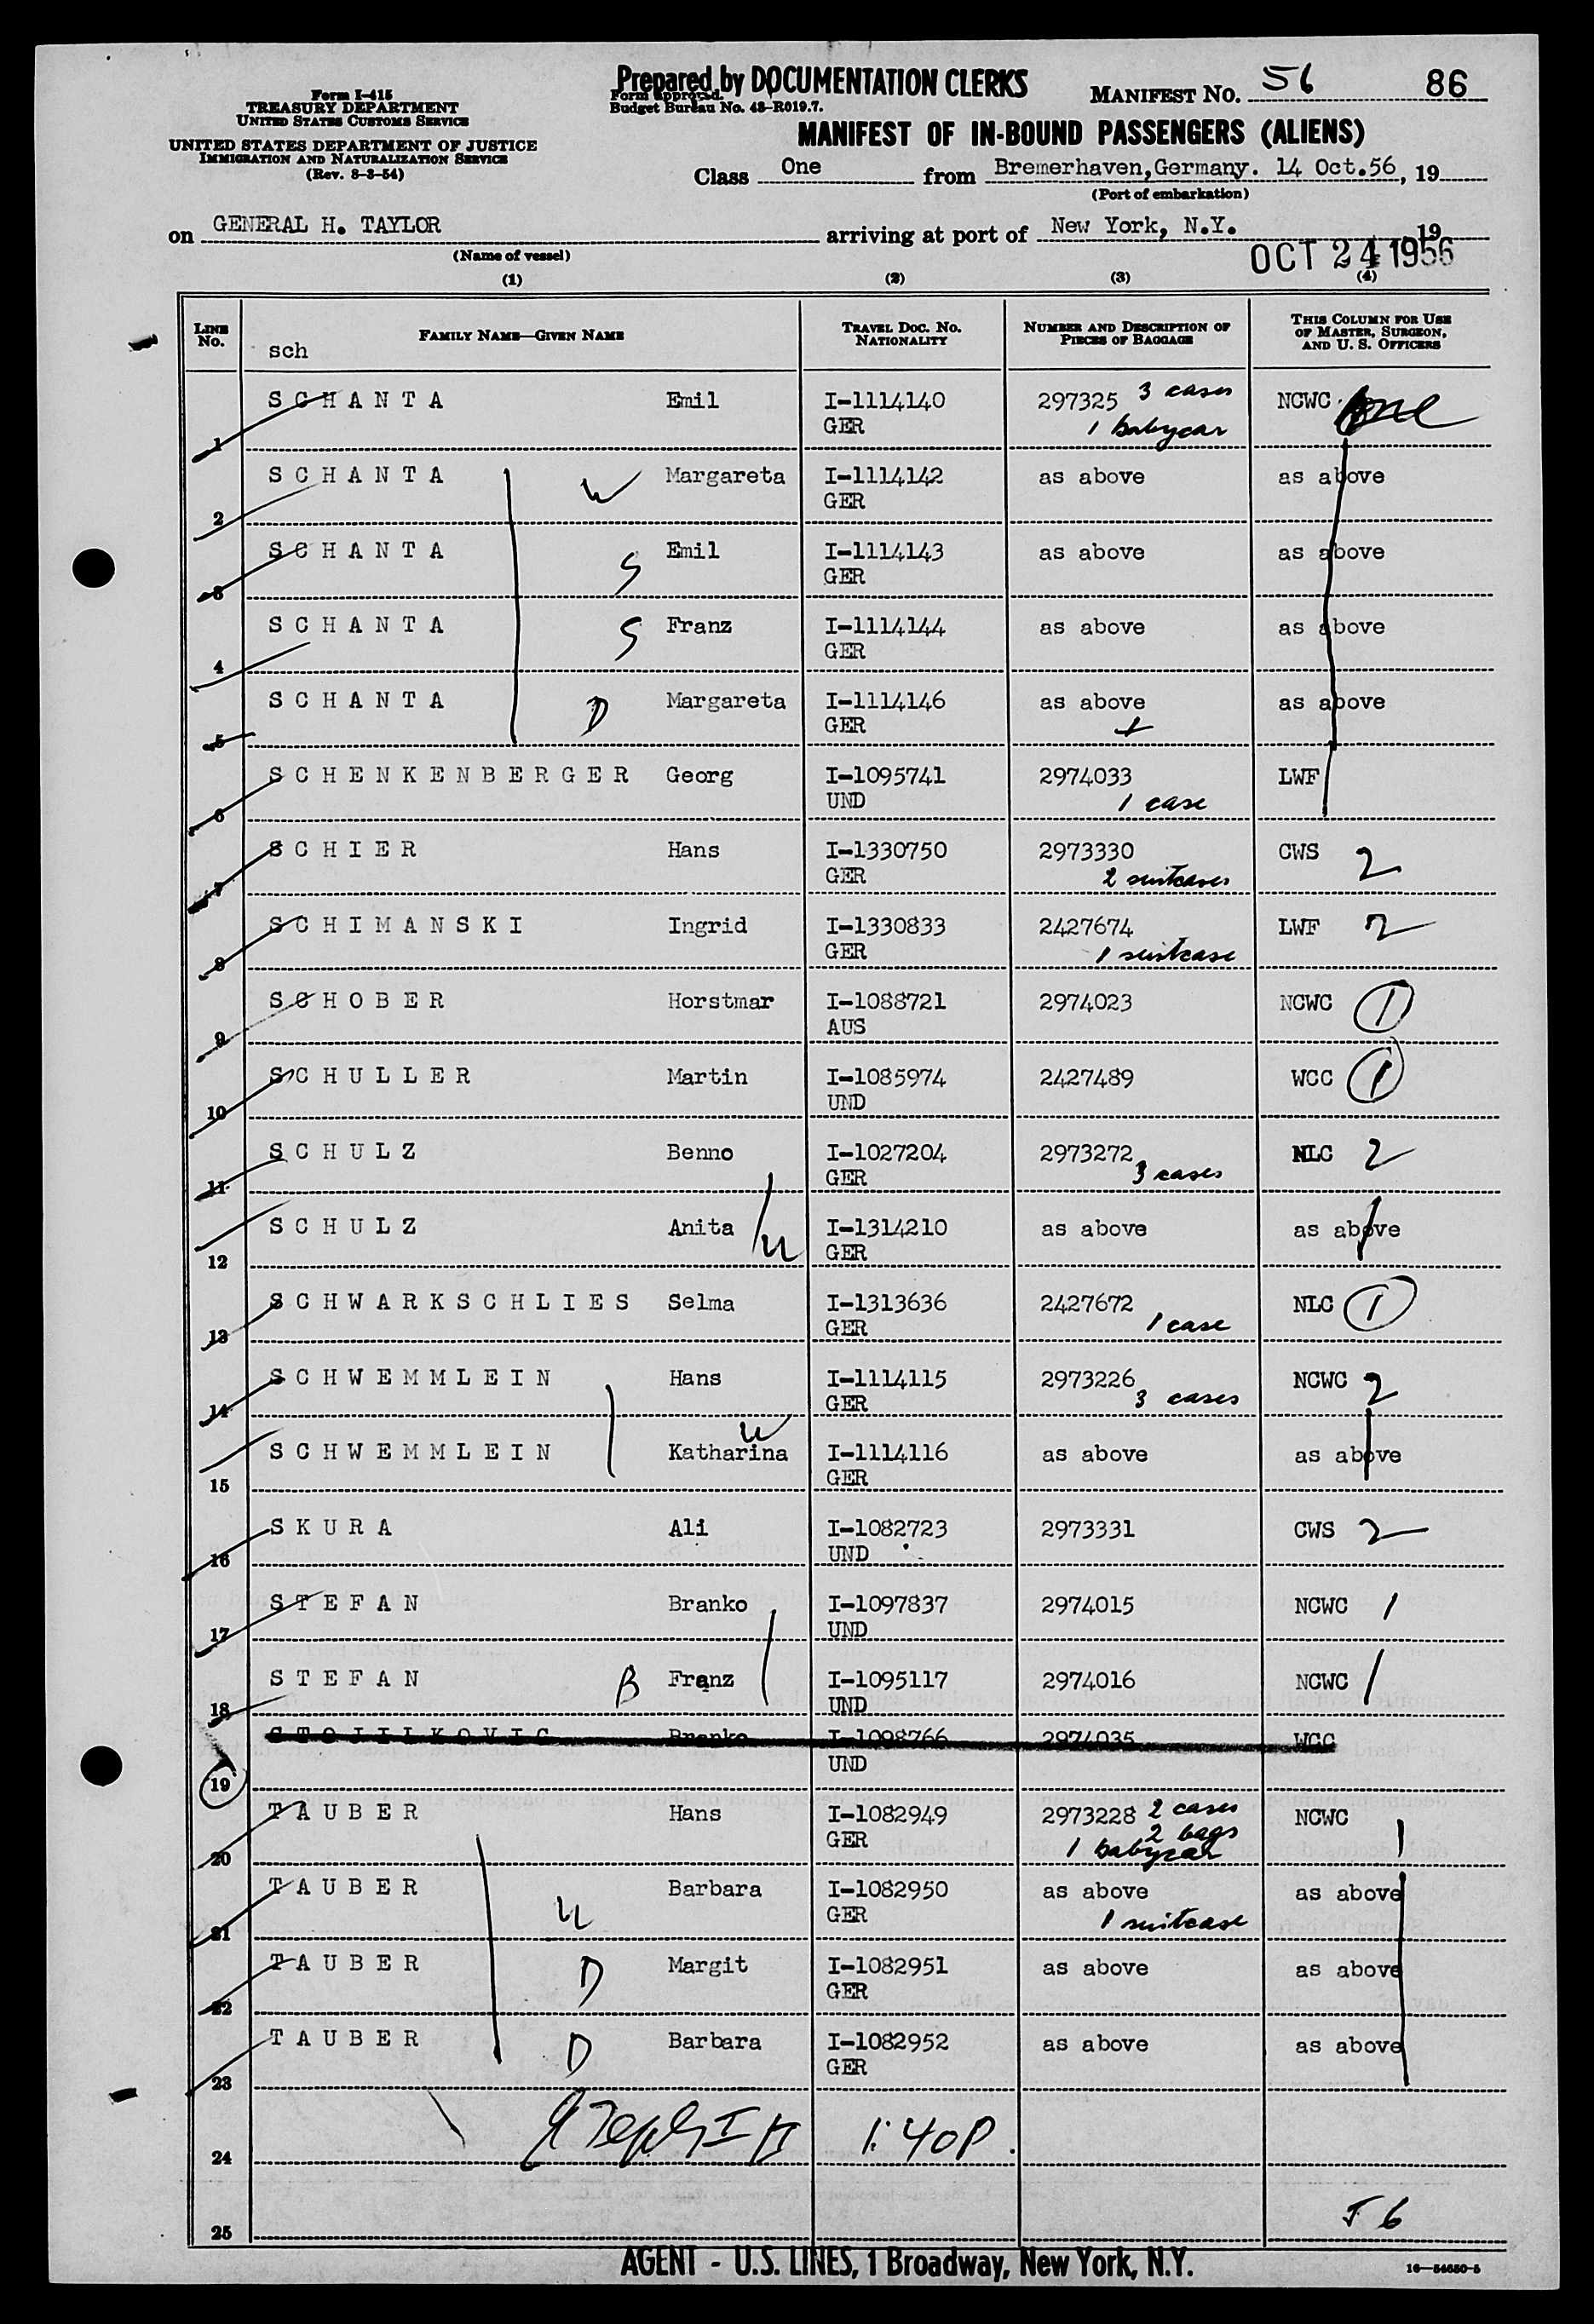 Form I-415
TREASURY DEPARTMENT
UNITED STATES CUSTOMS SERVICE
UNITED STATES DEPARTMENT OF JUSTICE
IMMIGRATION AND NATURALIZATION SERVICE
(Rev. 8-3-54)
Prepared by DOCUMENTATION CLERKS
Form approved.
Budget Bureau No. 43-R019.7.
MANIFEST NO. 56 86
MANIFEST OF IN-BOUND PASSENGERS (ALIENS)
Class One from Bremerhaven,Germany. 14 Oct.56, 19
(Port of embarkation)
on GENERAL H. TAYLOR arriving at port of New York, N.Y. 19
(Name of vessel)
OCT 24 1956
(1) (2) (3) (4)
LINE NO. FAMILY NAME—GIVEN NAME TRAVEL DOC. NO. NATIONALITY NUMBER AND DESCRIPTION OF PIECES OF BAGGAGE THIS COLUMN FOR USE OF MASTER, SURGEON, AND U. S. OFFICERS
sch
1 SCHANTA Emil I-1114140 297325 3 cases NCWC one
GER 1 babycar
2 SCHANTA W Margareta I-1114142 as above as above
GER
3 SCHANTA S Emil I-1114143 as above as above
GER
4 SCHANTA S Franz I-1114144 as above as above
GER
5 SCHANTA D Margareta I-1114146 as above as above
GER
6 SCHENKENBERGER Georg I-1095741 2974033 LWF
UND 1 case
7 SCHIER Hans I-1330750 2973330 CWS 2
GER 2 suitcases
8 SCHIMANSKI Ingrid I-1330833 2427674 LWF 2
GER 1 suitcase
9 SCHOBER Horstmar I-1088721 2974023 NCWC 1
AUS
10 SCHULLER Martin I-1085974 2427489 WCC 1
UND
11 SCHULZ Benno I-1027204 2973272 NLC 2
GER 3 cases
12 SCHULZ Anita W I-1314210 as above as above
GER
13 SCHWARKSCHLIES Selma I-1313636 2427672 NLC 1
GER 1 case
14 SCHWEMMLEIN Hans I-1114115 2973226 NCWC 2
GER 3 cases
15 SCHWEMMLEIN W Katharina I-1114116 as above as above
GER
16 SKURA Ali I-1082723 2973331 CWS 2
UND
17 STEFAN Branko I-1097837 2974015 NCWC 1
UND
18 STEFAN B Franz I-1095117 2974016 NCWC 1
UND
19 STOJILKOVIC Branko I-1098766 2974035 WCC
UND
20 TAUBER Hans I-1082949 2973228 2 cases NCWC 1
GER 2 bags
1 babycar
21 TAUBER W Barbara I-1082950 as above as above
GER 1 suitcase
22 TAUBER D Margit I-1082951 as above as above
GER
23 TAUBER D Barbara I-1082952 as above as above
GER
24 1:40P.
25
AGENT - U.S. LINES, 1 Broadway, New York, N.Y.
16—54650-5